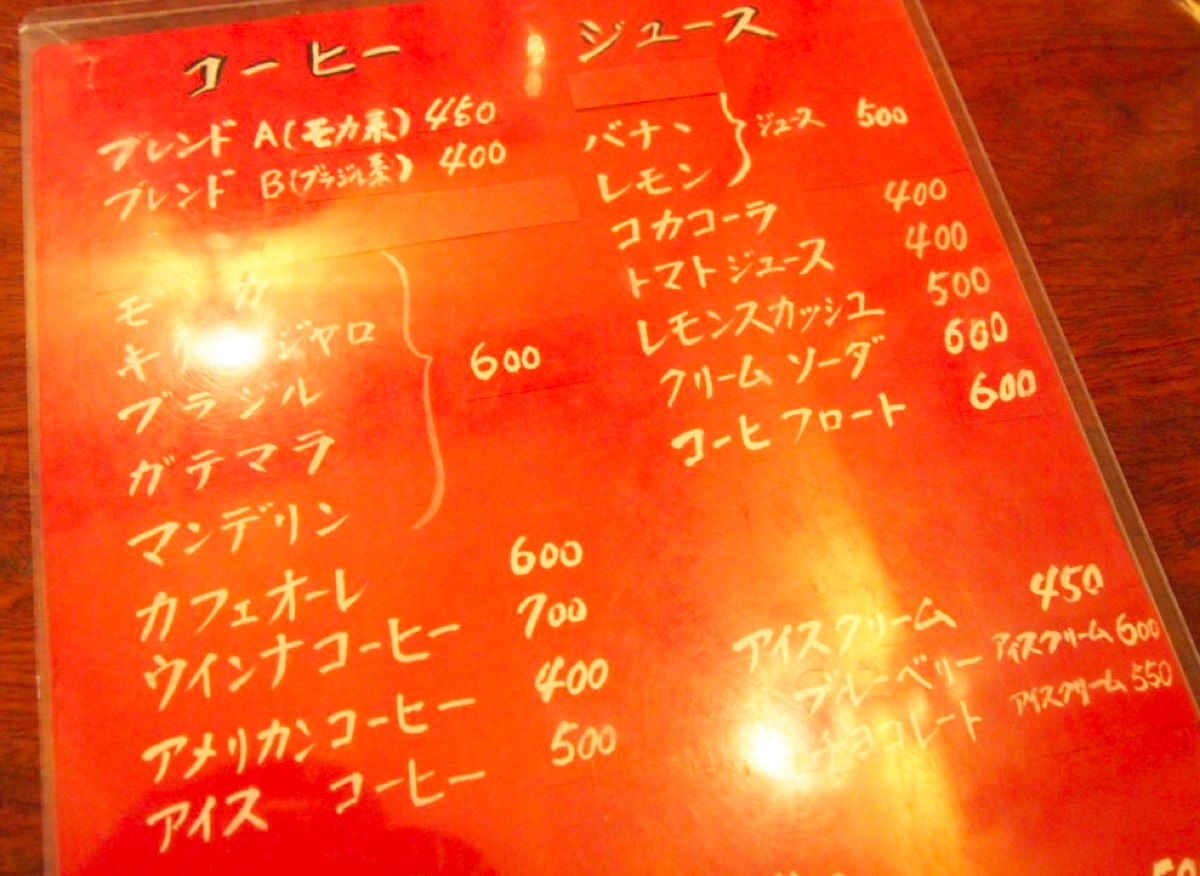 コーヒー
ブレンド A(モカ系) 450
ブレンド B(ブラジル系) 400
モカ
キリ ジャロ
ブラジル
600
ガテマラ
マンデリン
カフェオーレ 600
ウインナコーヒー 700
アメリカンコーヒー 400
アイス コーヒー 500
ジュース
バナヽ
レモン
ジュース 500
コカコーラ 400
トマトジュース 400
レモンスカッシュ 500
クリーム ソーダ 600
コーヒフロート 600
アイスクリーム 450
ブルーベリー アイスクリーム 600
チョコレート アイスクリーム 550